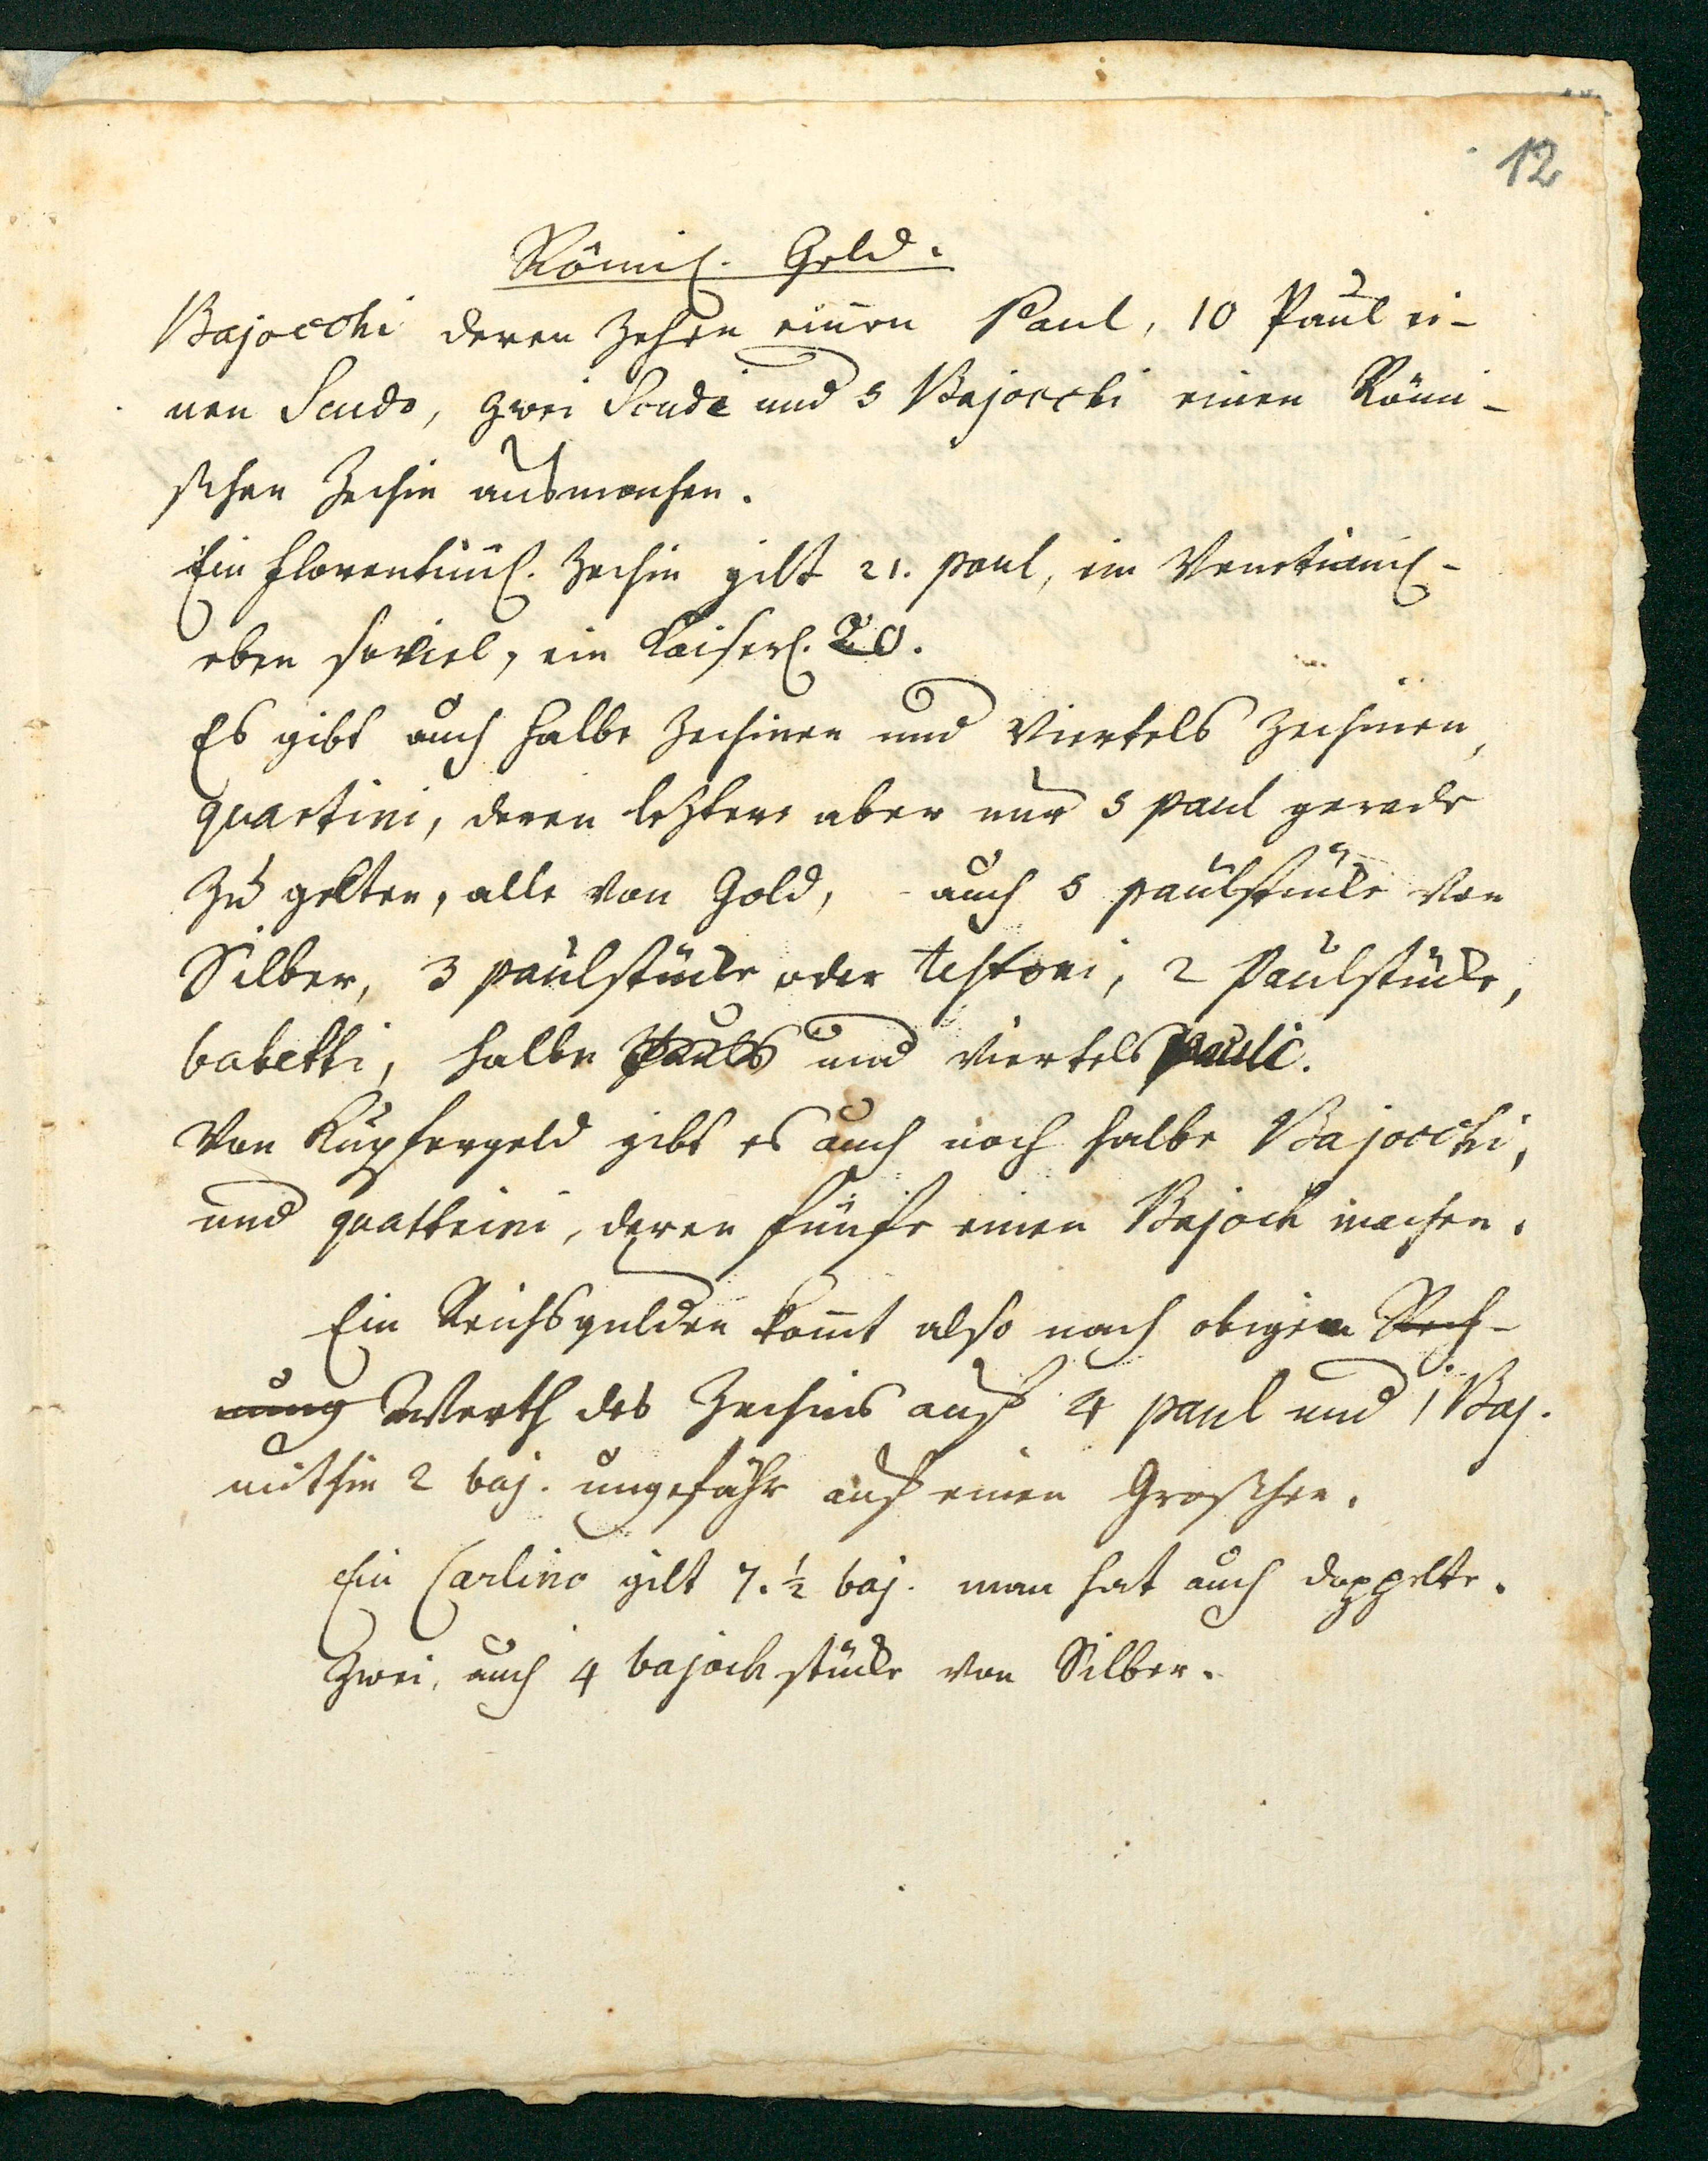 12
Römisch. Geld.
Bajocchi deren Zehen einen Paul, 10 Paul ei-
nen Scudo, zwei Scudi und 5 Bajocchi einen Römi-
schen Zechin ausmachen.
Ein florentinisch. Zechin gilt 21. paul, ein Venetianisch-
eben soviel, ein Kaiserl. 20.
Es gibt auch halbe Zechinen und Viertels Zechinen,
quartini, deren leztere aber nur 5 paul gerade
zu gelten, alle von Gold, auch 5 paulstücke von
Silber, 3 paulstücke oder testoni, 2 Paulstücke,
babetti, halbe Pauls und viertels Pauli.
Von Kupfergeld gibt es auch noch halbe Bajocchi,
und quattrini, deren fünfe einen Bajock machen.
Ein Reichsgulden komt also nach obigem Rech-
nung Werth des Zechins auf 4 paul und 1 Baj.
mithin 2 baj. ungefähr auf einen Groschen.
Ein Carlino gilt 7. ½ baj. man hat auch doppelte.
Zwei, auch 4 bajock stücke von Silber.